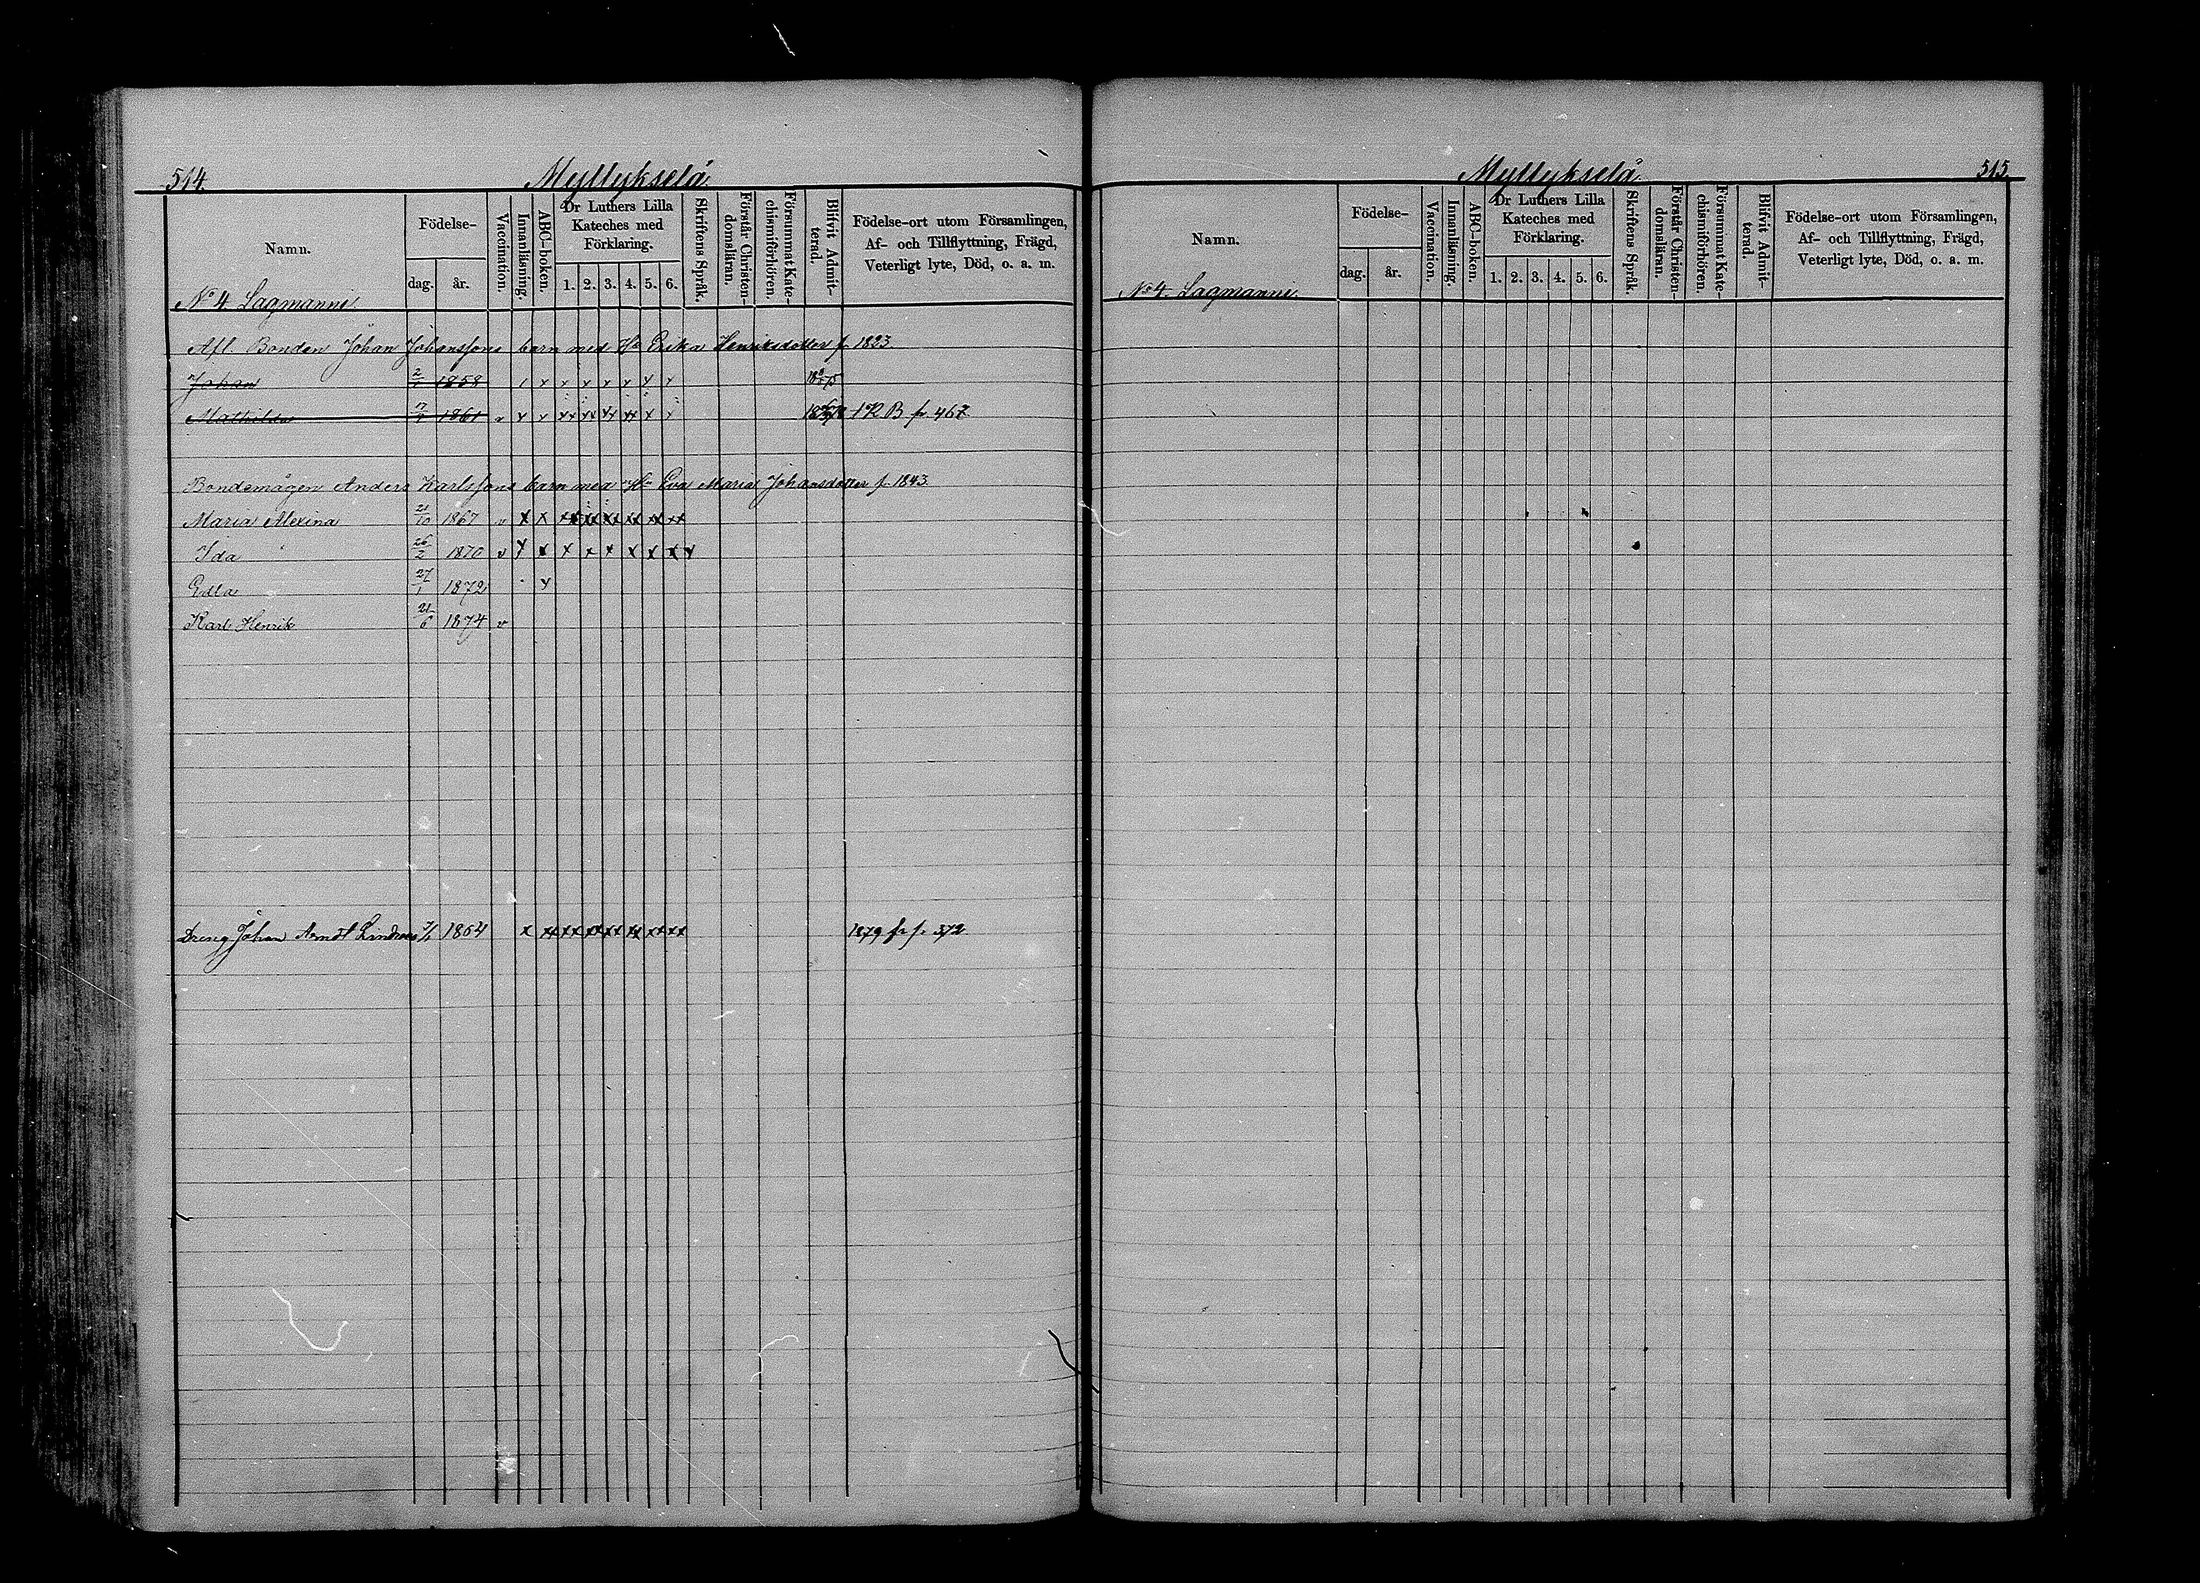 514.
Myllykselä.
Namn.
Födelse-
dag. år.
Vaccination.
Innanläsning.
ABC-boken.
Dr Luthers Lilla
Kateches med
Förklaring.
1. 2. 3. 4. 5. 6.
Skriftens Språk.
Förstår Christen-
domsläran.
Försummat Kate-
chismiförhören.
Blifvit Admit-
terad.
Födelse-ort utom Församlingen,
Af- och Tillflyttning, Frägd,
Veterligt lyte, Död, o. a. m.
No 4. Lagmanni
Afl. Bonden Johan Johanssons barn med Ha Erika Henriksdotter f. 1823.
Johan 1858
Mathilda 1861 v 172 B fr. 467.
Bondemågen Anders Karlssons barn med Ha Eva Maria Johansdotter f. 1843.
Maria Alexina 21/10 1867 v x x xx xx xx xx xx xx
Ida " 26/2 1870 v x x x x x x x x x
Edla 27/1 1872
Karl Henrik 21/6 1874 v
Dreng Johan 1864 x xx xx xx xx xx xx xx 1879 fr f. 372
Myllykselä.
515.
Namn.
Födelse-
dag. år.
Vaccination.
Innanläsning.
ABC-boken.
Dr Luthers Lilla
Kateches med
Förklaring.
1. 2. 3. 4. 5. 6.
Skriftens Språk.
Förstår Christen-
domsläran.
Försummat Kate-
chismiförhören.
Blifvit Admit-
terad.
Födelse-ort utom Församlingen,
Af- och Tillflyttning, Frägd,
Veterligt lyte, Död, o. a. m.
No 4. Lagmanni.